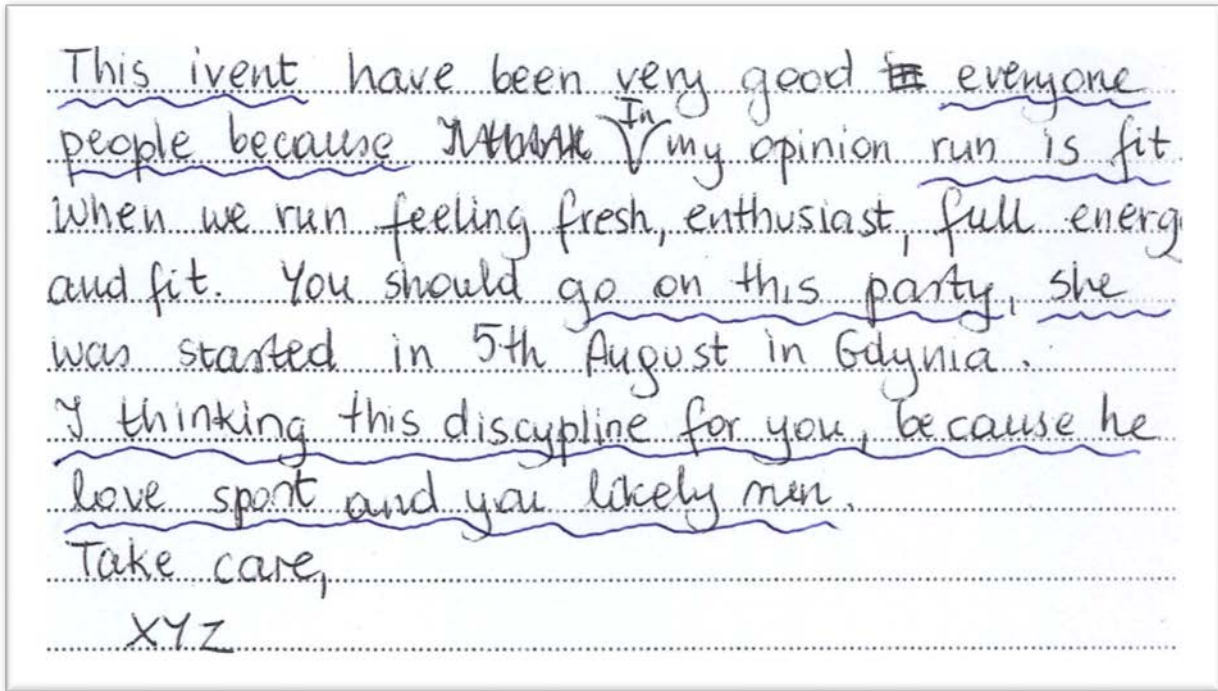 This ivent have been very good everyone
people because In my opinion run is fit.
When we run feeling fresh, enthusiast, full energ
and fit. You should go on this party, she
was started in 5th August in Gdynia.
I thinking this discypline for you, because he
love sport and you likely men.
Take care,
XYZ